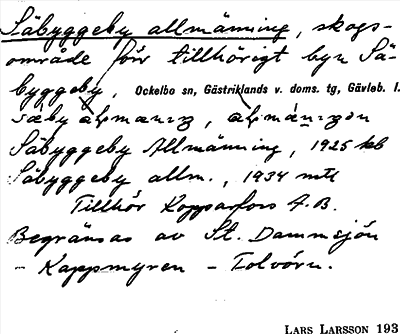 Säbyggeby allmänning, skogs-
område förr tillhörigt byn Sä-
byggeby, Ockelbo sn, Gästriklands v. doms. tg, Gävleb. l.
Säbyggeby Allmänning, 1925 kb
Säbyggeby allm., 1934 mtl
Tillhör Kopparfors A.B.
Begränsas av St. Dammsjön
– Kappmyren – Tolvörn.
LARS LARSSON 193